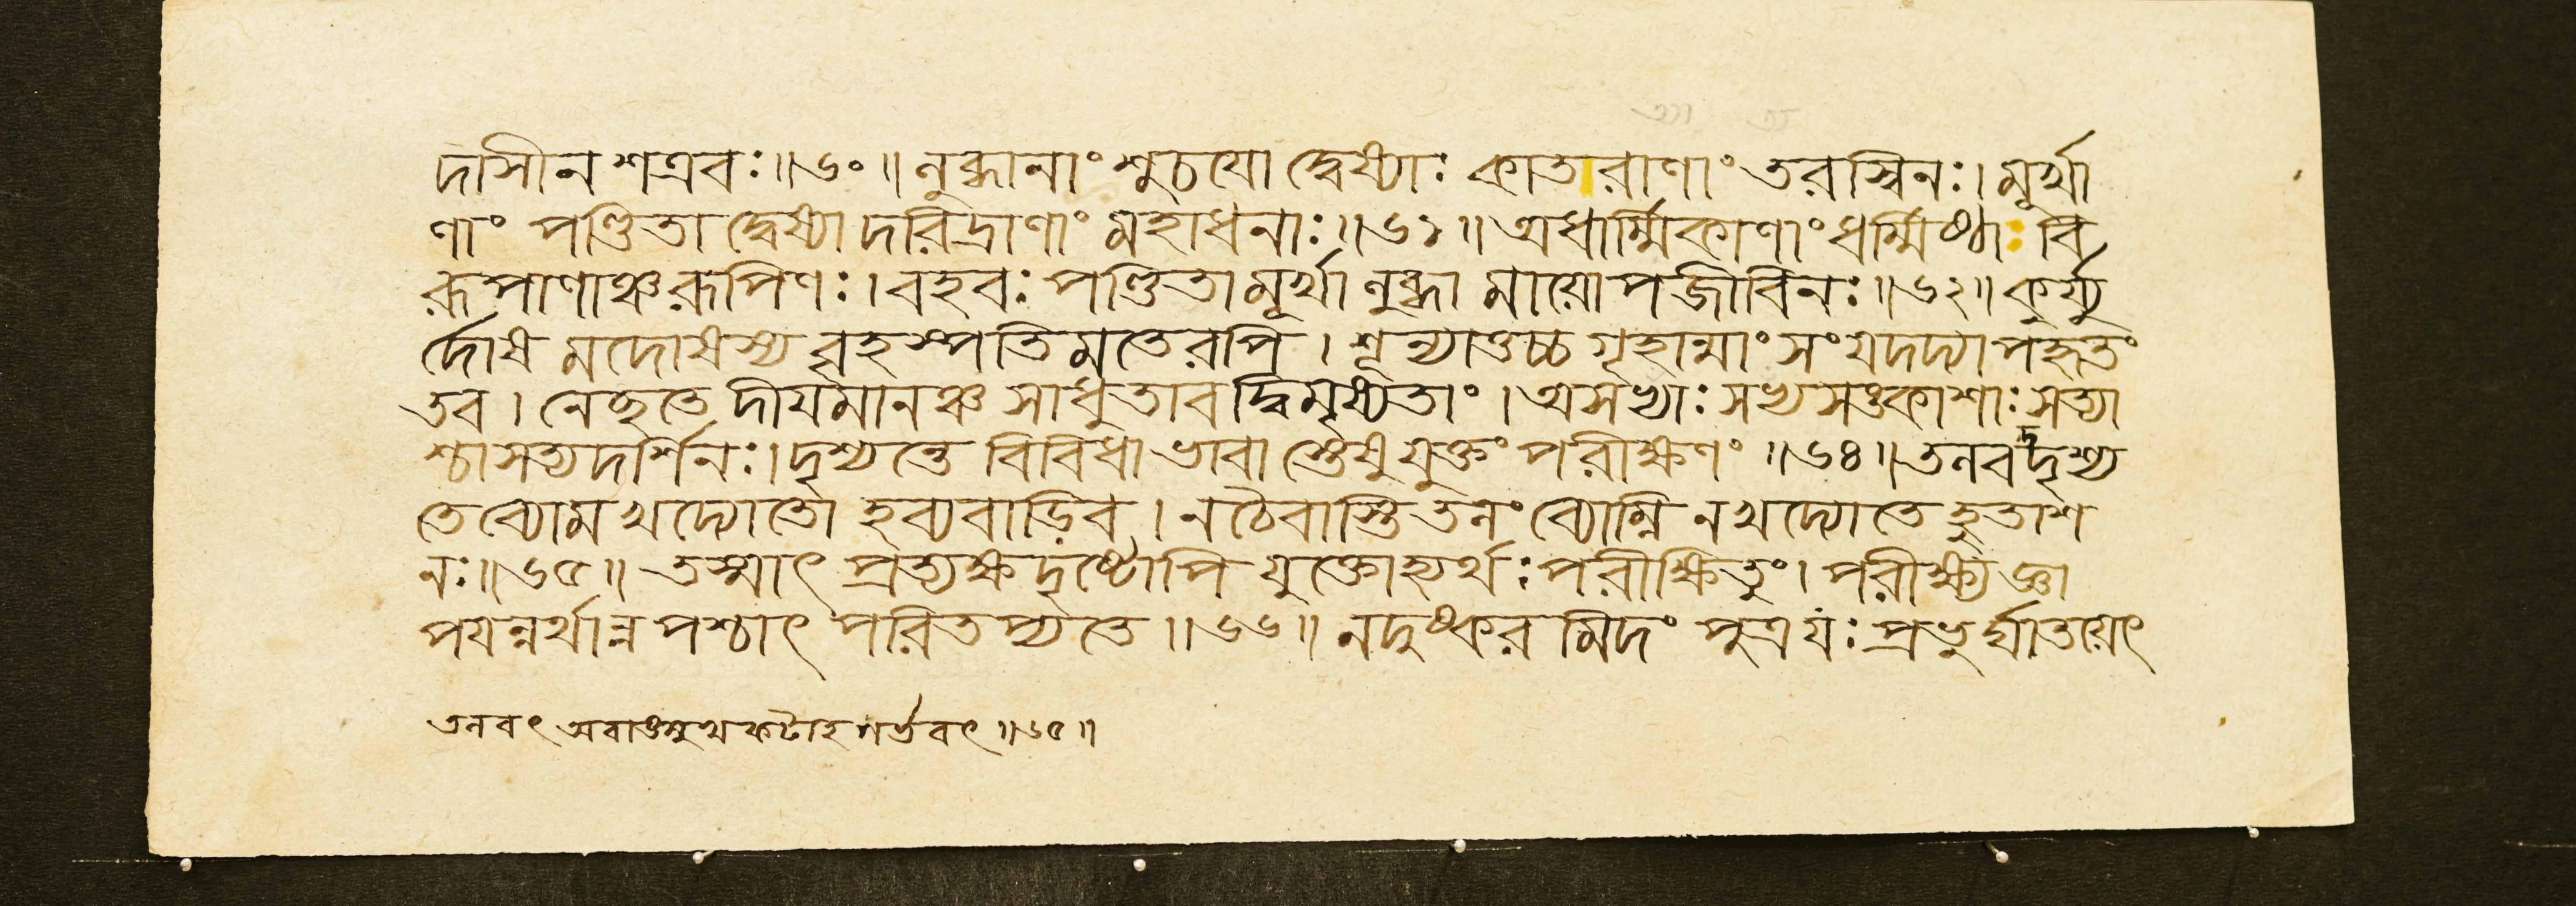 দাসীন শত্রবঃ ॥৬০॥ লুব্ধানাং শুচয়ো দ্বেষ্যাঃ কাতরাণাং তরস্বিনঃ। মূর্খা
ণাং পণ্ডিতা দ্বেষ্যা দরিদ্রাণাং মহাধনাঃ ॥৬১॥ অধার্ম্মিকাণাং ধর্ম্মিষ্ঠাঃ বি
রূপাণাঞ্চ রূপিণঃ। বহবঃ পণ্ডিতা মূর্খা লুব্ধা মায়োপজীবিনঃ ॥৬২॥ কুর্য্যু
র্দোষ মদোষস্য বৃহস্পতিমতেরপি। শূন্যাত্তচ্চ গৃহান্মাংসং যদদ্যাপহৃতং
তব। নেচ্ছতে দীয়মানঞ্চ সাধু তাবদ্বিমৃষ্যতাং। অসখ্যাঃ সখ্যসঙ্কাশাঃ সত্যা
শ্চাসত্যদর্শিনঃ। দৃশ্যন্তে বিবিধা ভাবা স্তেষু যুক্তং পরীক্ষণং ॥৬৪॥ তলবদ্দৃশ্য
তে ব্যোম খদ্যোতো হব্যবাড়িব। নচৈবাস্তি তলং ব্যোম্নি ন খদ্যোতে হুতাশ
নঃ ॥৬৫॥ তস্মাৎ প্রত্যক্ষদৃষ্টোপি যুক্তোহ্যর্থঃ পরীক্ষিতুং। পরীক্ষ্য জ্ঞা
পয়ন্নর্থান্ন পশ্চাৎ পরিতপ্যতে ॥৬৬॥ নদুষ্করমিদং পুত্র যঃ প্রভুর্ঘাতয়েৎ
তলবৎ অবাঙমুখ কটাহ গর্ভবৎ ॥৬৫॥